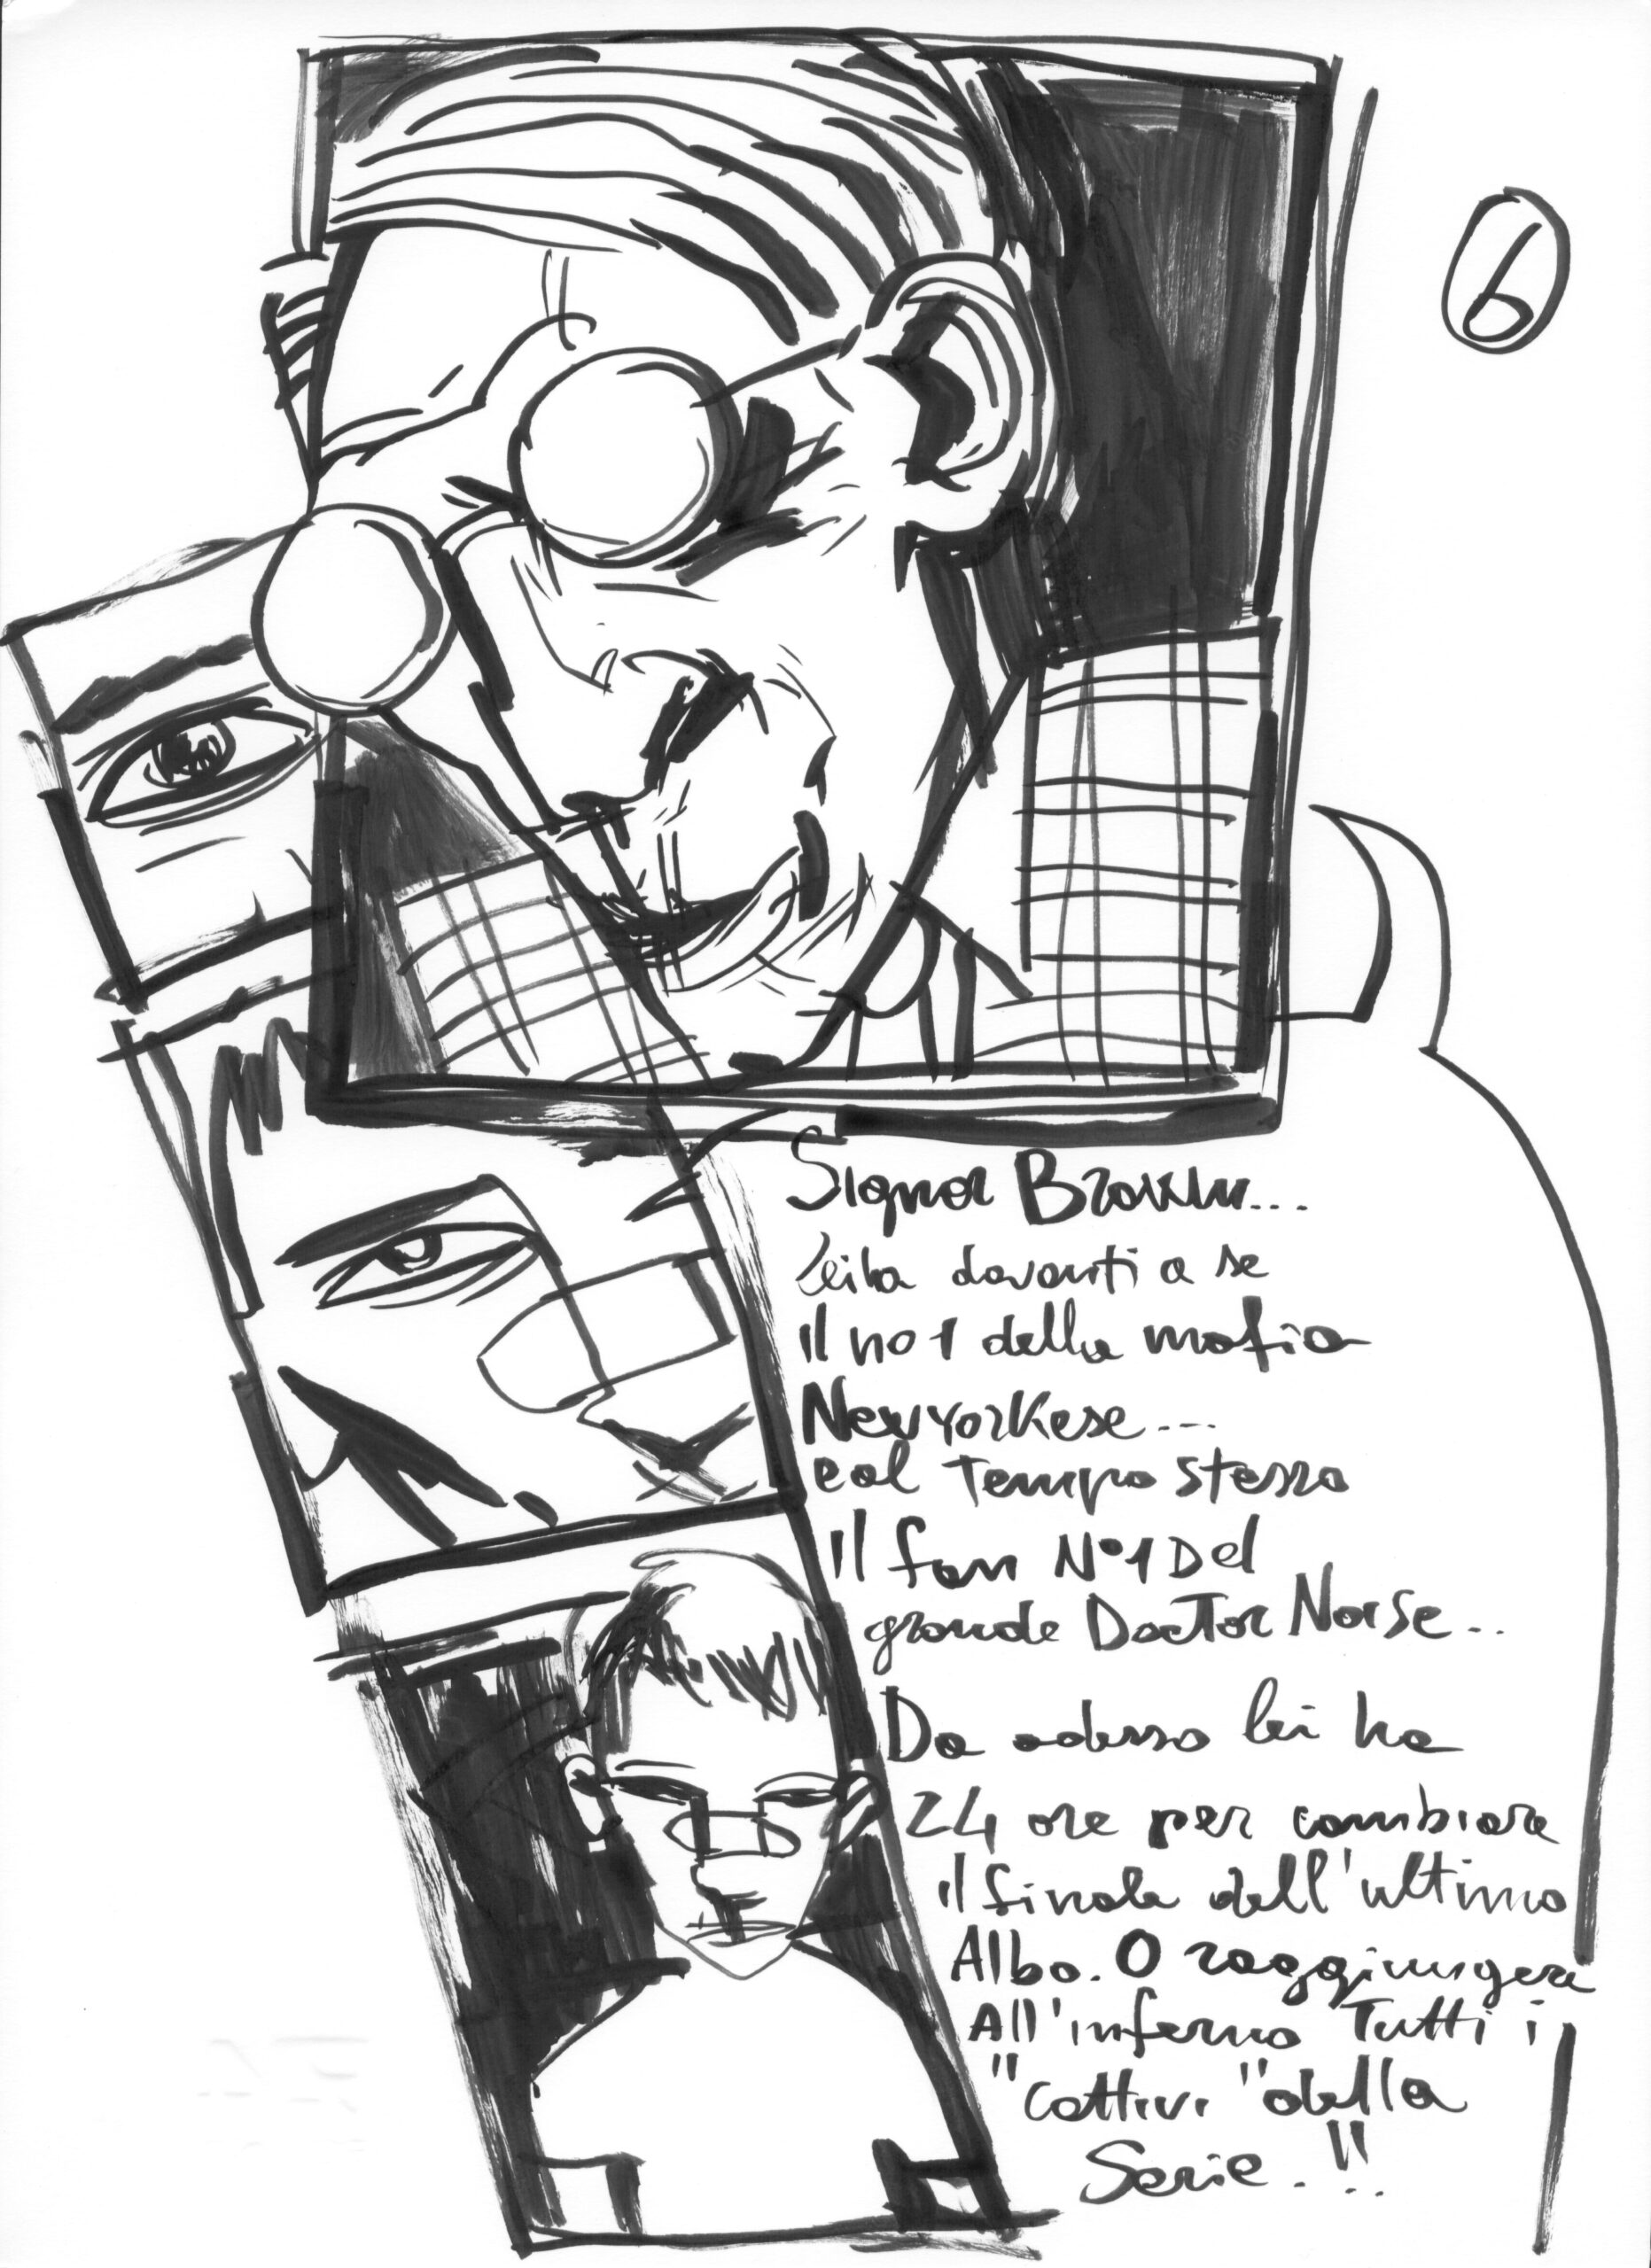 6
Signor Broklin...
lei ha davanti a se
il no 1 della mafia
Newyorkese...
e al tempo stesso
il fan N°1 Del
grande Doctor Norse..
Da adesso lei ha
24 ore per cambiare
il finale dell'ultimo
Albo. O raggiungere
All'inferno Tutti i
"cattivi" della
Serie...!!